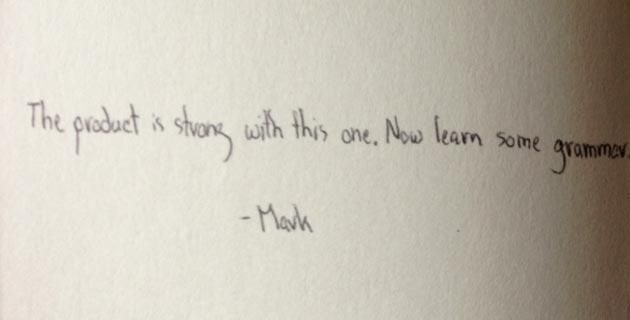 The product is strong with this one. Now learn some grammar.
- Mark